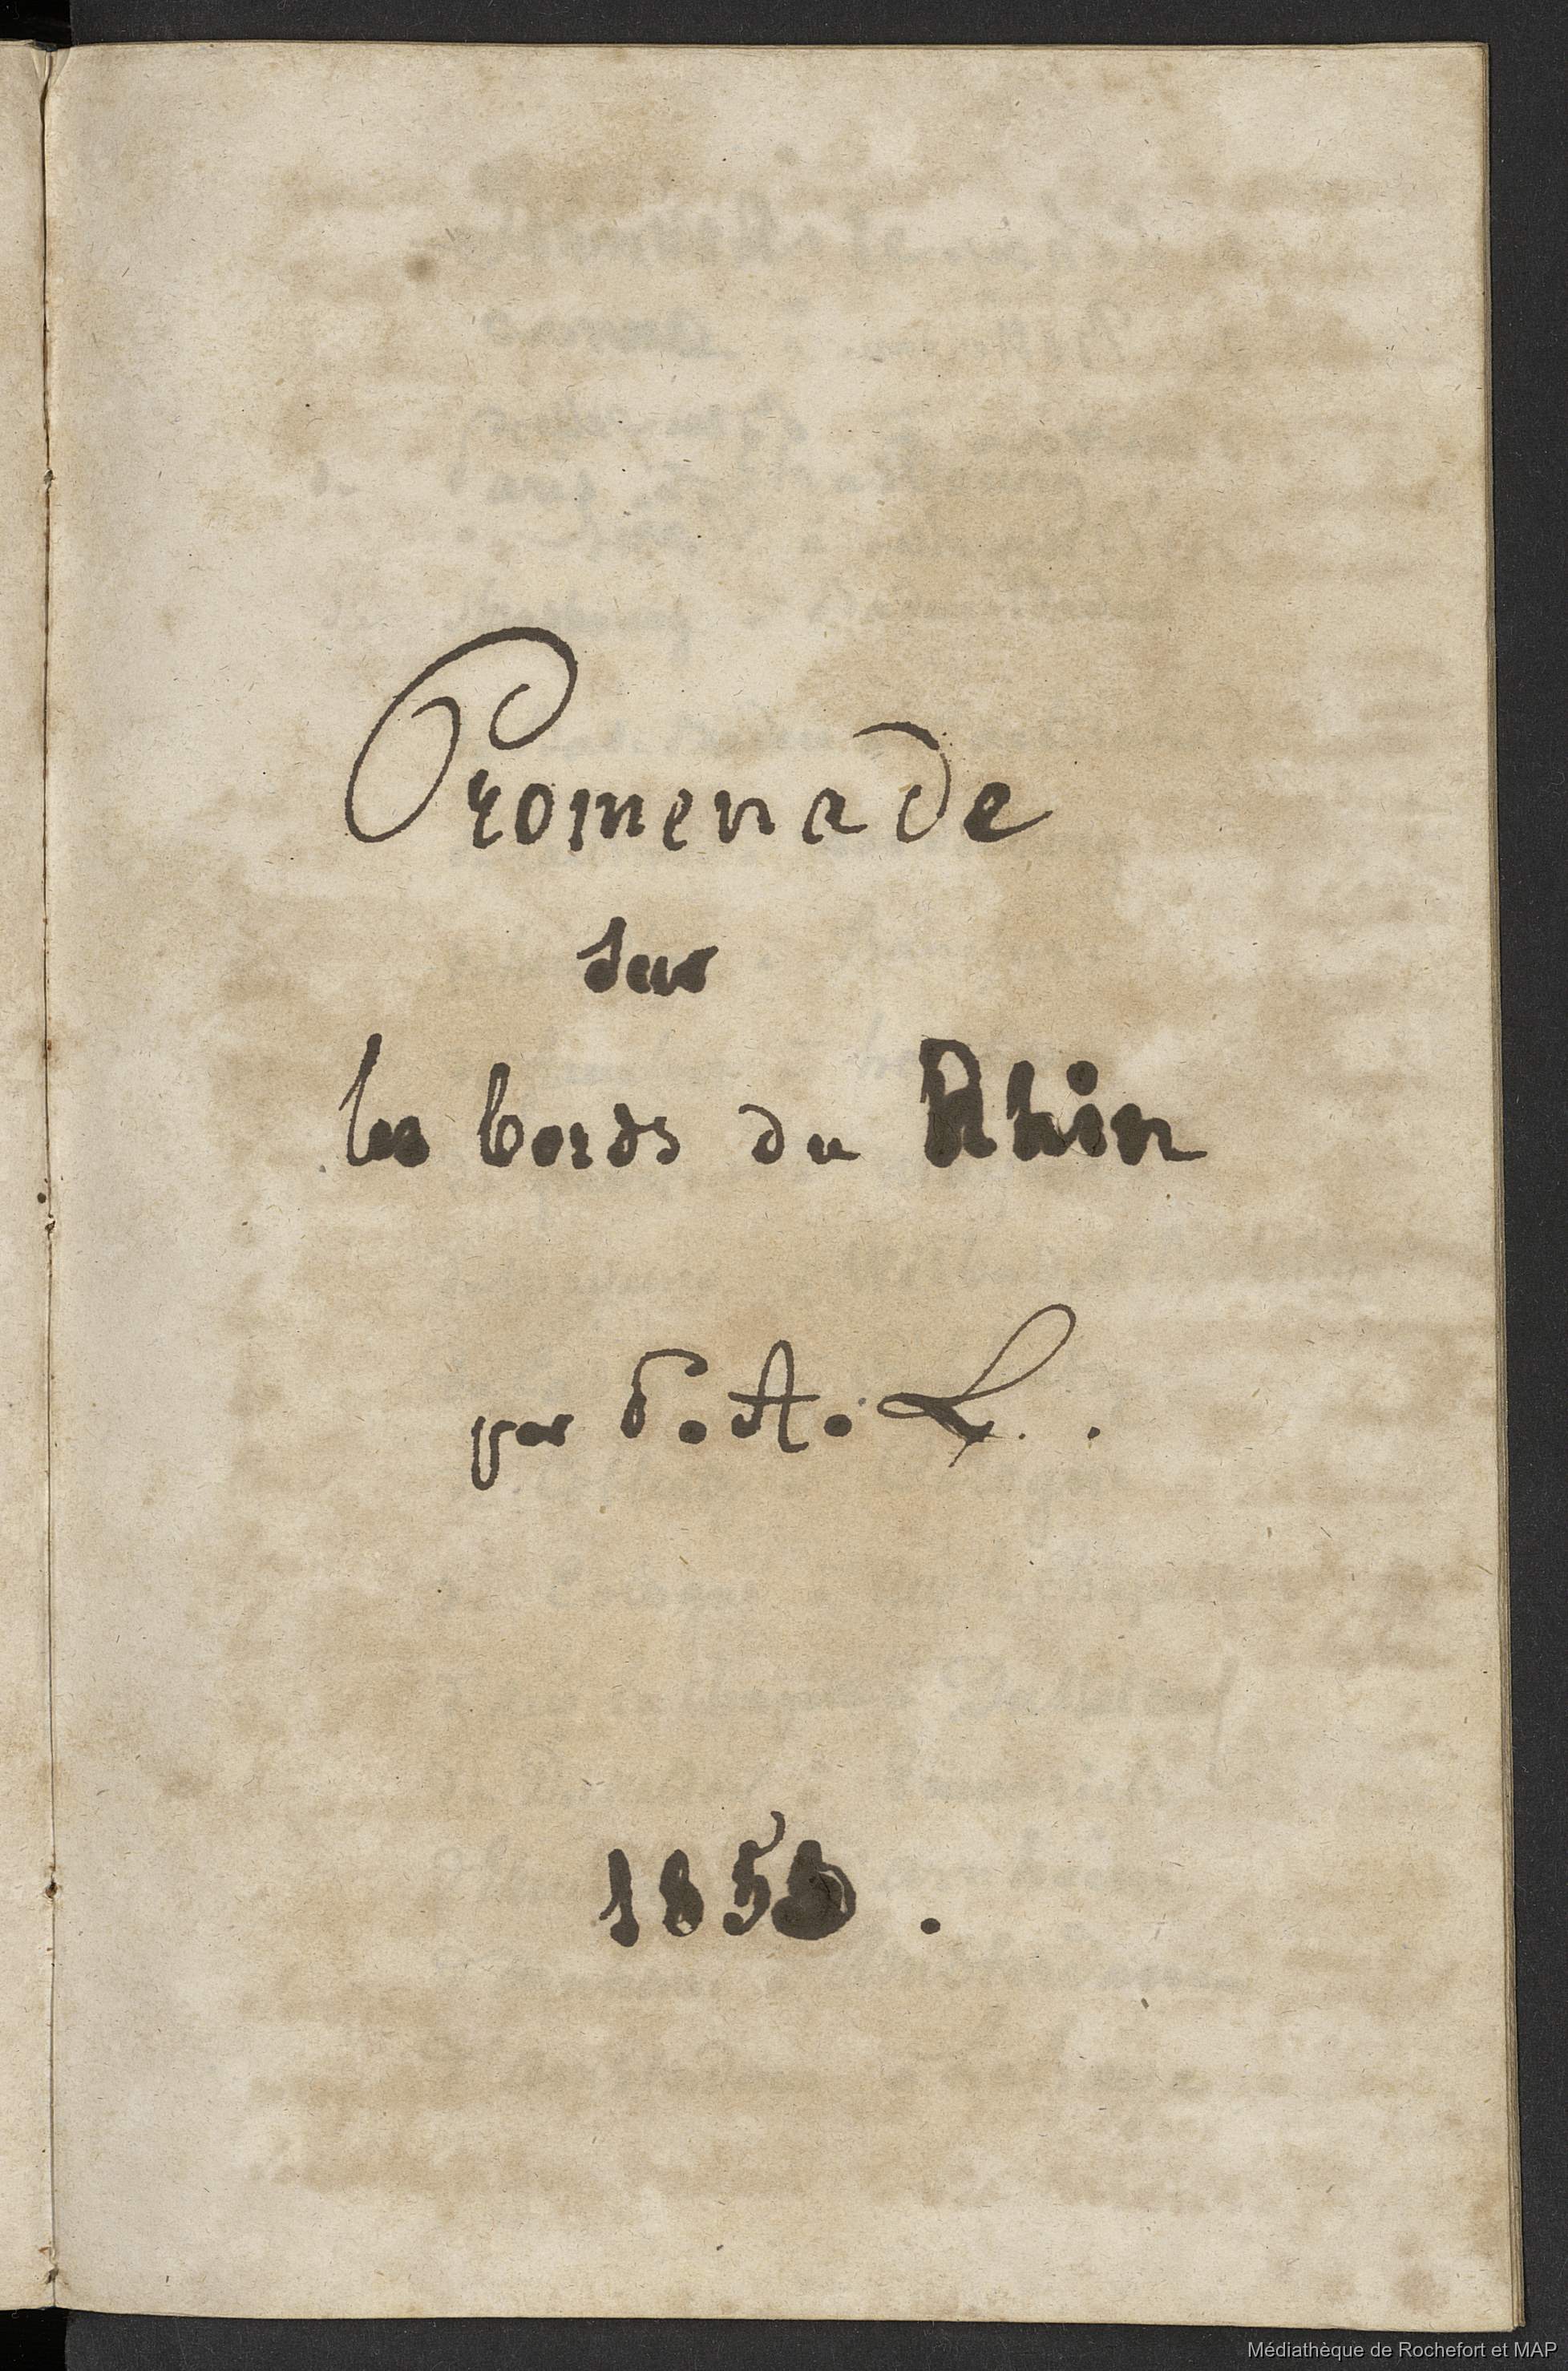 Promenade
sur
les bords du Rhin
par P. A. L.
Médiathèque de Rochefort et MAP